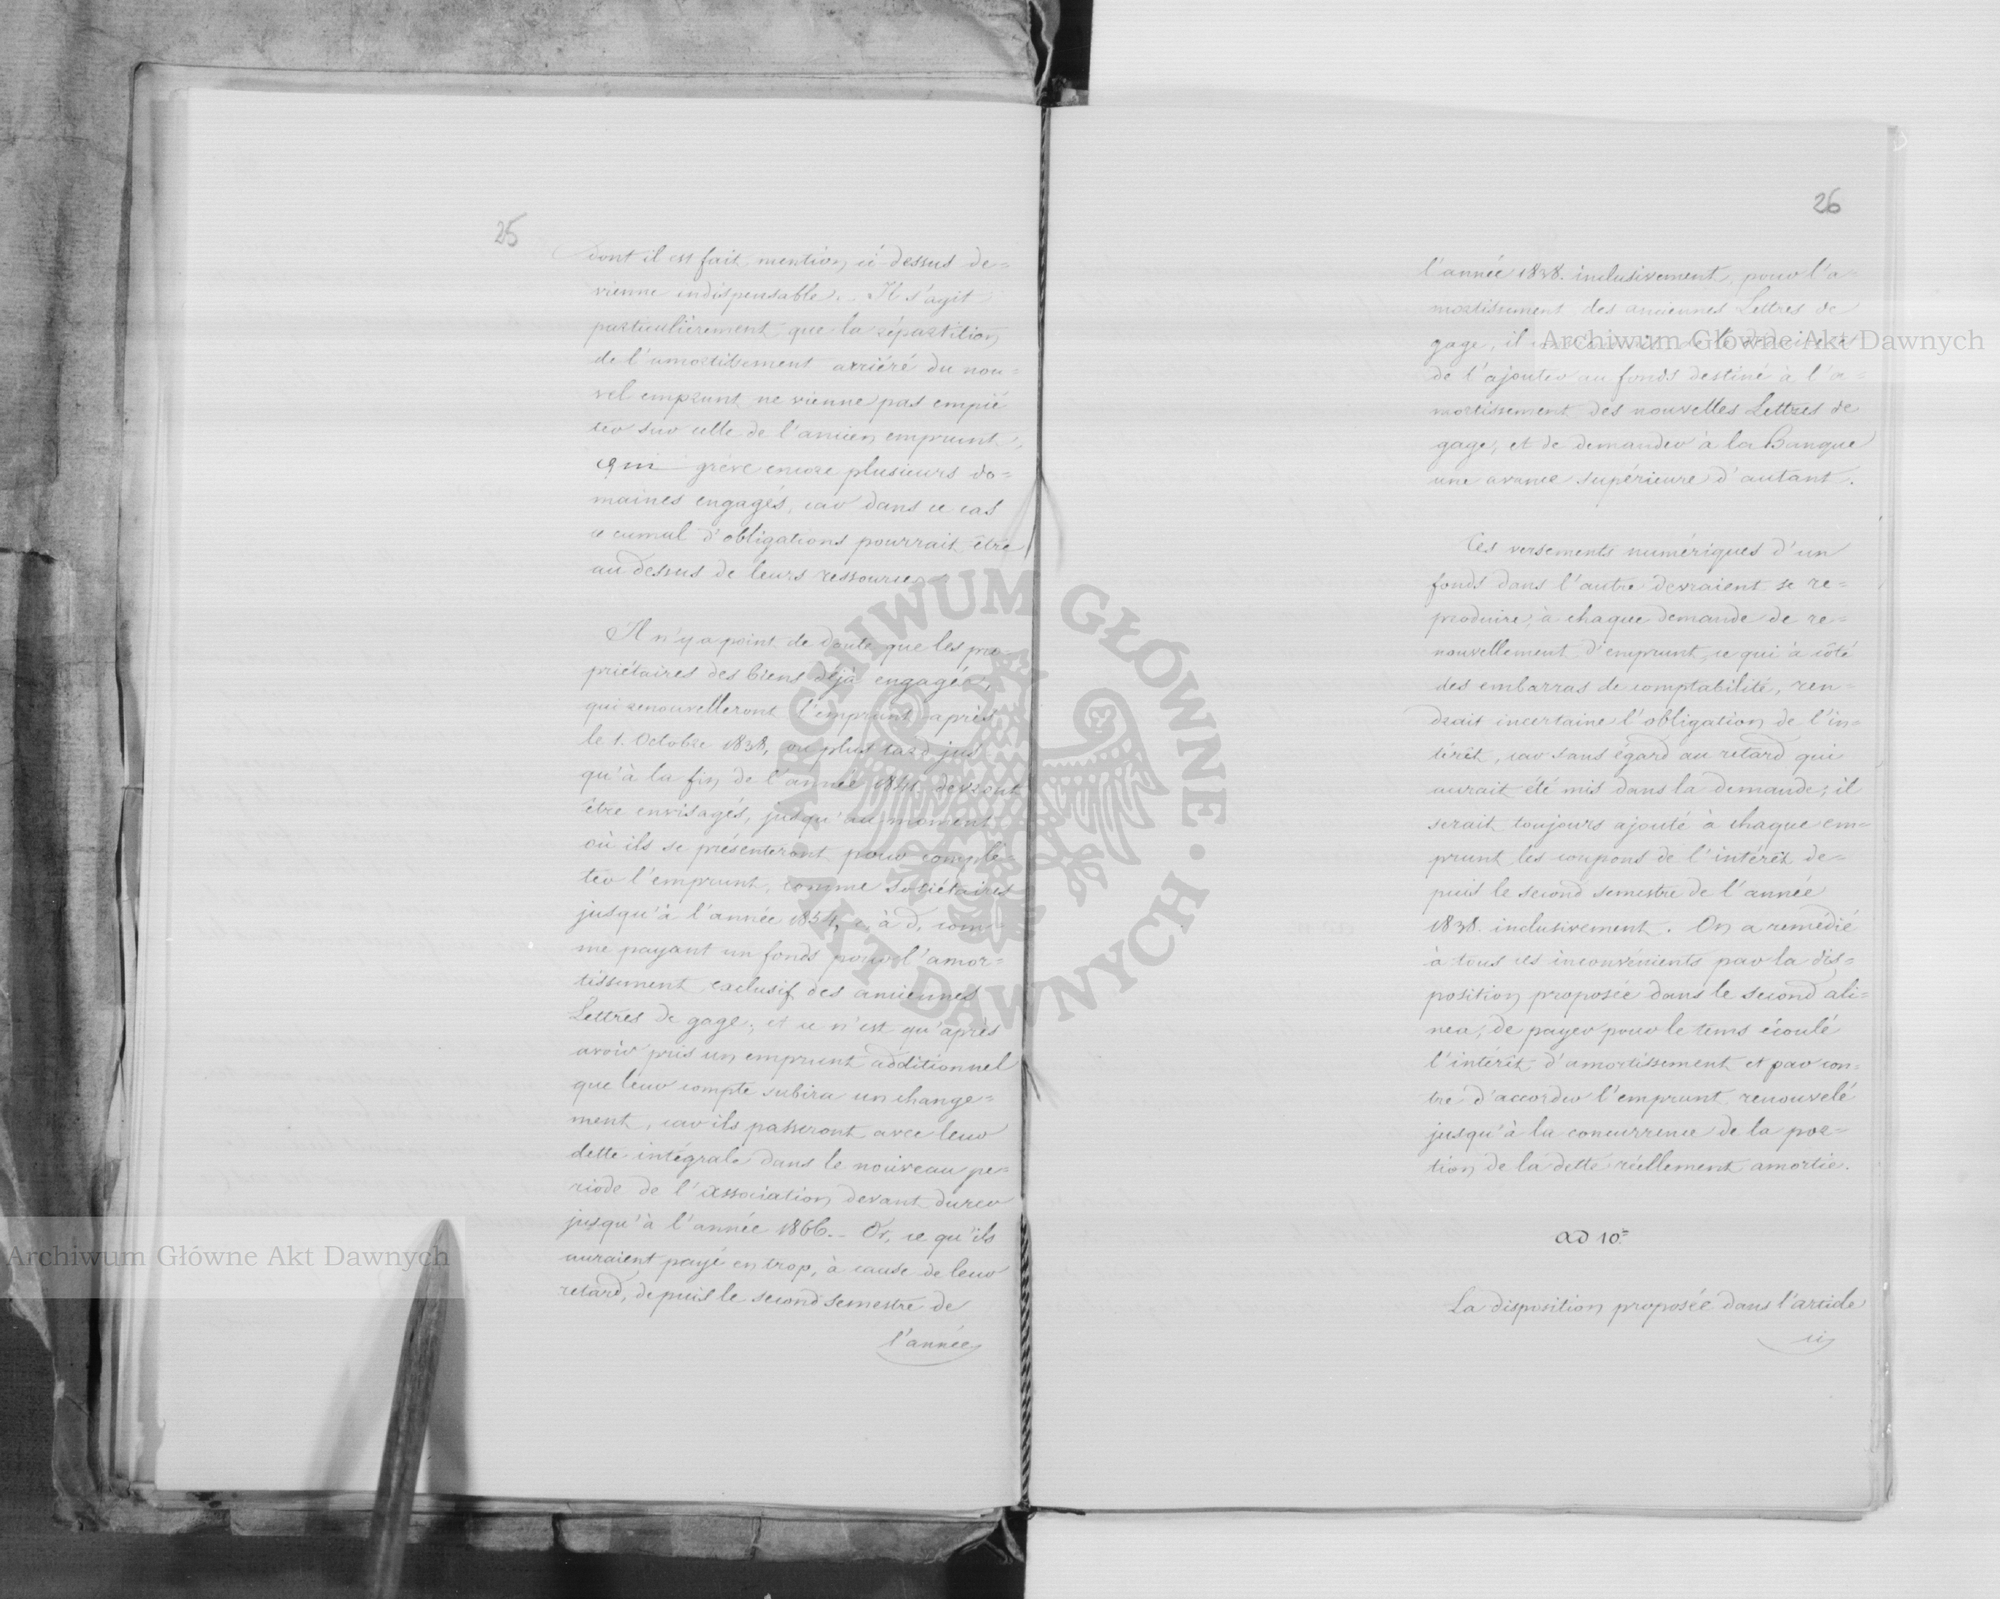 25
dont il est fait mention ci dessus de=
vienne indispensable. Il s'agit
particulièrement que la répartition
de l'amortissement arriéré du nou=
vel emprunt ne vienne pas empié
ter sur celle de l'ancien emprunt,
qui grève encore plusieurs do=
maines engagés, car dans ce cas
ce cumul d'obligations pourrait être
au dessus de leurs ressources.
Il n'y a point de doute que les pro=
priétaires des biens déjà engagés,
qui renouvelleront l'emprunt après
le 1. Octobre 1838, ou plus tard jus
qu'à la fin de l'année 1841. devront
être envisagés, jusqu'au moment
où ils se présenteront pour complé=
ter l'emprunt, comme sociétaires
jusqu'à l'année 1854, c. à d. com=
me payant un fonds pour l'amor=
tissement exclusif des anciennes
Lettres de gage; et ce n'est qu'après
avoir pris un emprunt additionnel
que leur compte subira un change=
ment, car ils passeront avec leur
dette intégrale dans le nouveau pe=
riode de l'association devant durer
jusqu'à l'année 1866. - Or, ce qu'ils
auraient payé en trop, à cause de leur
retard, depuis le second semestre de
l'année
26
l'année 1838. inclusivement, pour l'a=
mortissement des anciennes Lettres de
gage, il
de l'ajouter au fonds destiné à l'a=
mortissement des nouvelles Lettres de
gage, et de demander à la Banque
une avance supérieure d'autant.
Ces versements numériques d'un
fonds dans l'autre devraient se re=
produire, à chaque demande de re=
nouvellement d'emprunt, ce qui à côté
des embarras de comptabilité, ren=
drait incertaine l'obligation de l'in=
térêt, car sans égard au retard qui
aurait été mis dans la demande, il
serait toujours ajouté à chaque em=
prunt les coupons de l'intérêt de=
puis le second semestre de l'année
1838. inclusivement. On a remédié
à tous ces inconvénients par la dis=
position proposée dans le second ali=
nea, de payer pour le tems écoulé
l'intérêt d'amortissement et par con=
tré d'accorder l'emprunt renouvelé
jusqu'à la concurrence de la por=
tion de la dette réellement amortie.
ad 10.
La disposition proposée dans l'article
ici
Archiwum Główne Akt Dawnych
Archiwum Główne Akt Dawnych
ARCHIWUM GŁÓWNE · AKT DAWNYCH ·